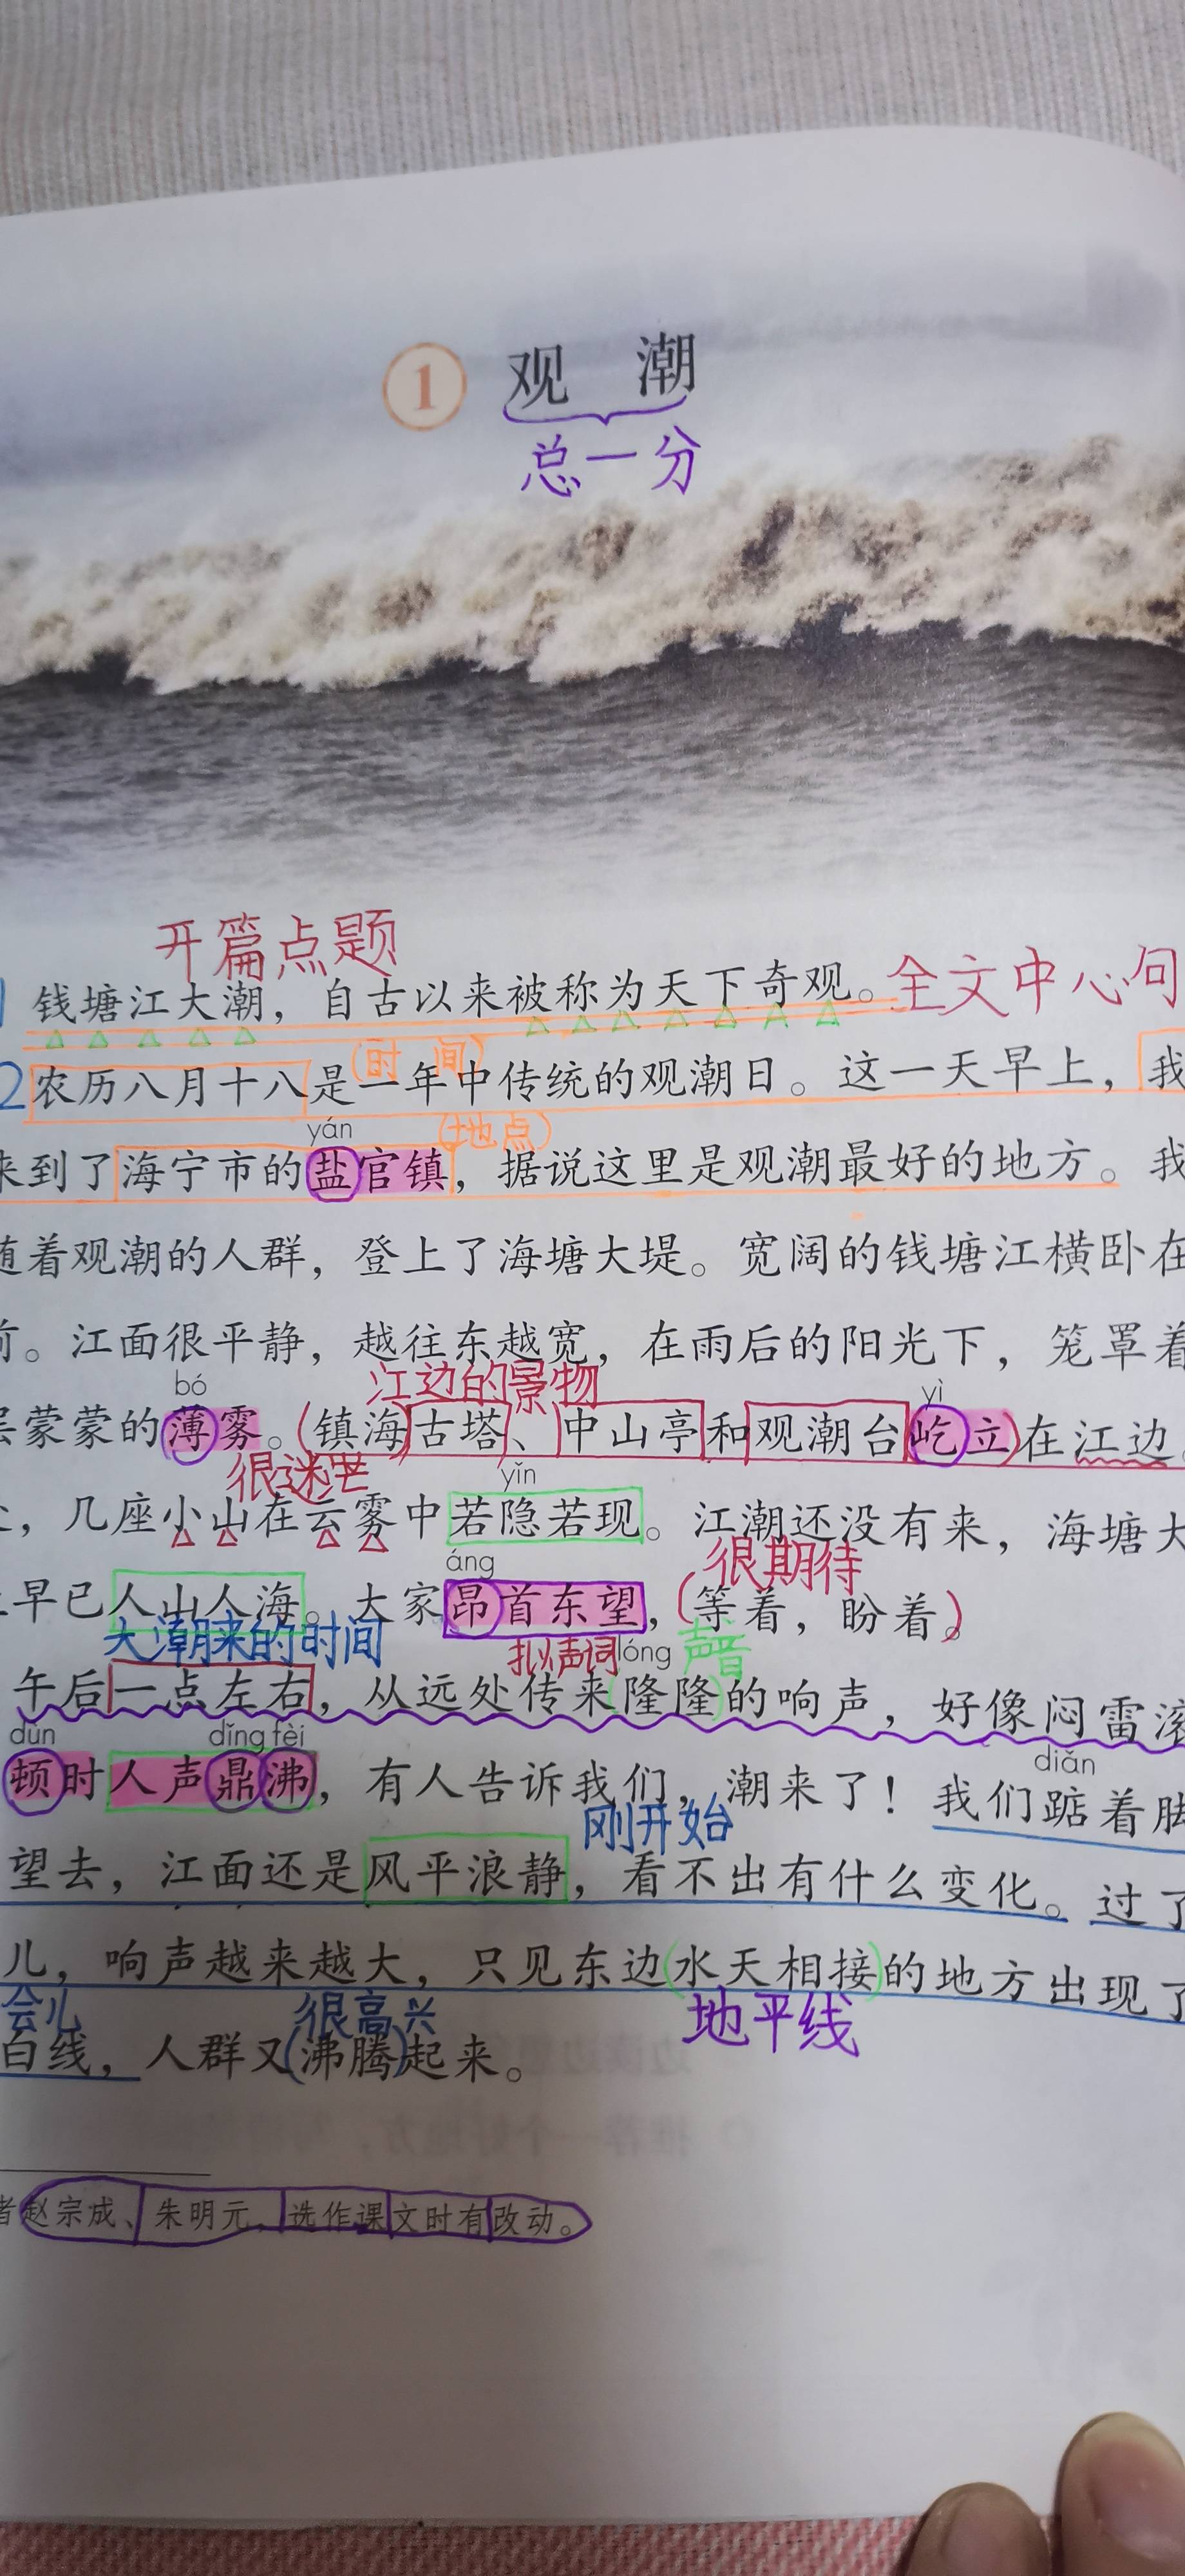 1 观 潮
总一分
开篇点题
1 钱塘江大潮，自古以来被称为天下奇观。全文中心句
(时间)
2 农历八月十八是一年中传统的观潮日。这一天早上，我
yán (地点)
来到了海宁市的盐官镇，据说这里是观潮最好的地方。我
随着观潮的人群，登上了海塘大堤。宽阔的钱塘江横卧在
前。江面很平静，越往东越宽，在雨后的阳光下，笼罩着
bó 江边的景物 yì
层蒙蒙的薄雾。(镇海古塔、中山亭和观潮台屹立)在江边。
很迷茫 yǐn
，几座小山在云雾中若隐若现。江潮还没有来，海塘大
áng 很期待
上早已人山人海。大家昂首东望，(等着，盼着)。
大潮来的时间 拟声词 lóng 声音
午后一点左右，从远处传来(隆隆)的响声，好像闷雷滚
dùn dǐng fèi diǎn
顿时人声鼎沸，有人告诉我们，潮来了！我们踮着脚
刚开始
望去，江面还是风平浪静，看不出有什么变化。过了
儿，响声越来越大，只见东边(水天相接)的地方出现了
会儿 很高兴 地平线
白线，人群又(沸腾)起来。
者赵宗成、朱明元，选作课文时有改动。